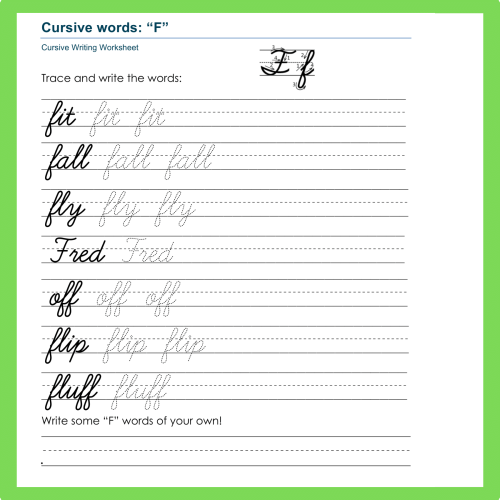 Cursive words: “F”
Cursive Writing Worksheet
F f
Trace and write the words:
fit fit fit
fall fall fall
fly fly fly
Fred Fred
off off off
flip flip flip
fluff fluff
Write some “F” words of your own!